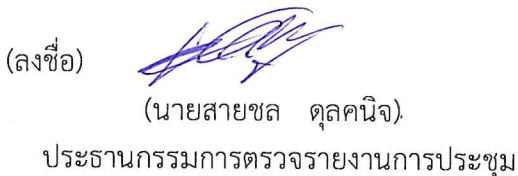 (ลงชื่อ)
(นายสายชล ดุลคนิจ)
ประธานกรรมการตรวจรายงานการประชุม